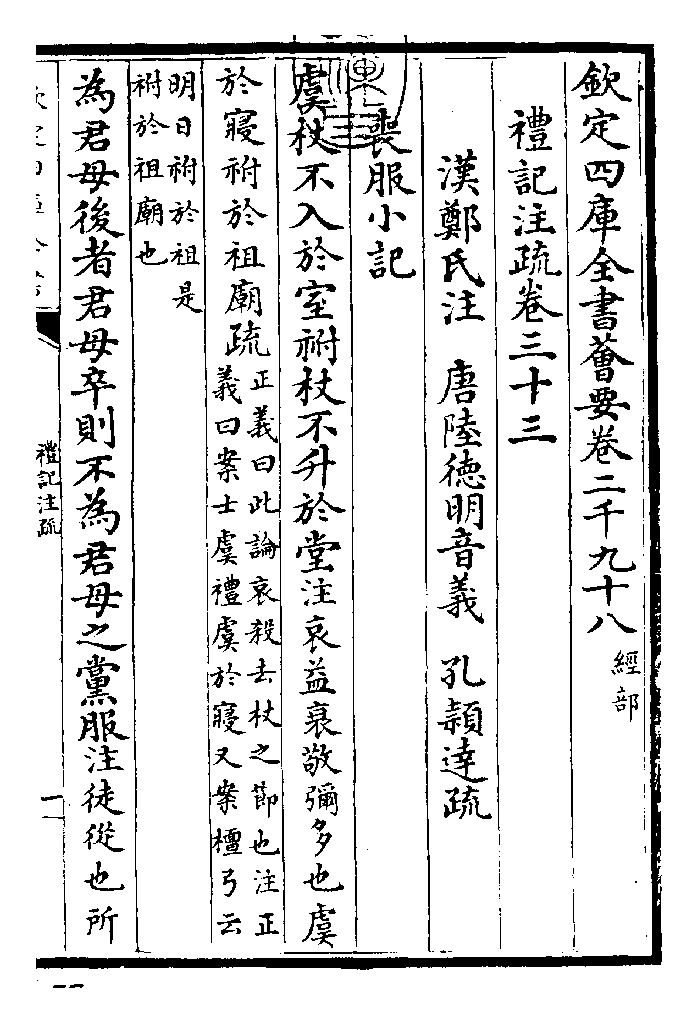 欽定四庫全書薈要卷二千九十八 經部
禮記注疏卷三十三
漢鄭氏注 唐陸德明音義 孔頴達疏
喪服小記
虞杖不入於室祔杖不升於堂注哀益衰敬彌多也虞
於寢祔於祖廟疏正義曰此論哀殺去杖之節也注正
義曰案士虞禮虞於寢又案檀弓云
明日祔於祖是
祔於祖廟也
為君母後者君母卒則不為君母之黨服注徒從也所
禮記注疏
一